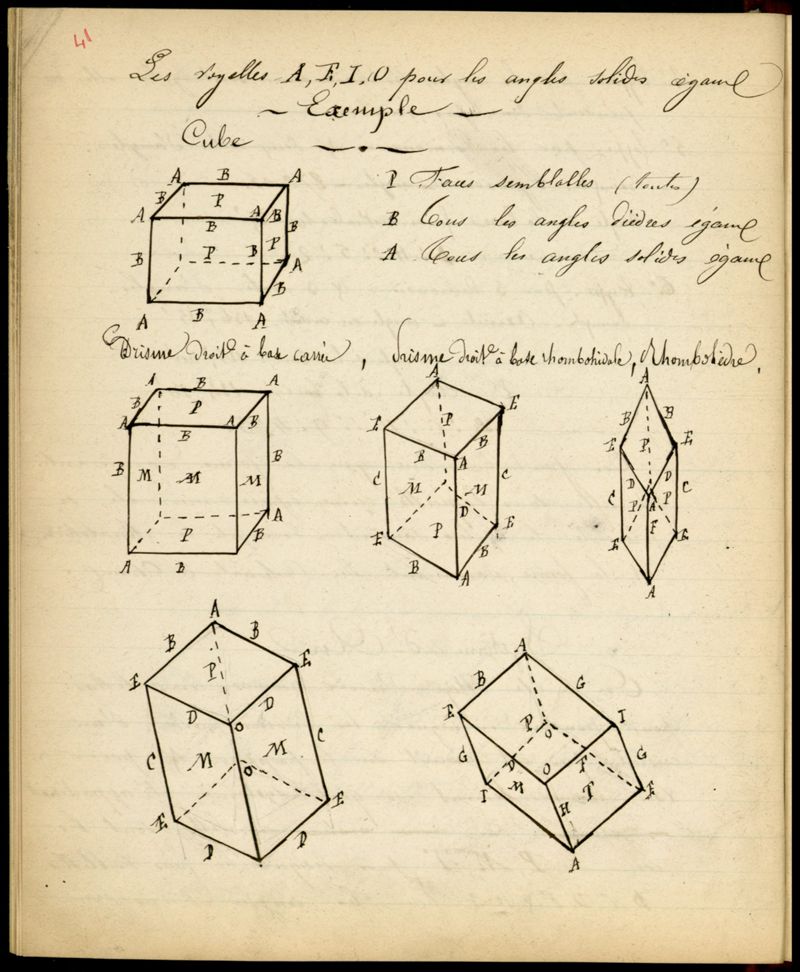 41
Les voyelles A, E, I, O pour les angles solides égaux
Exemple
Cube
P Faces semblables (toutes)
B Tous les angles dièdres égaux
A Tous les angles solides égaux
A B A
B P
A B A B
B P B P B
A
B
A B A
Prisme droit à base carrée, Prisme droit à base rhomboïdale, Rhomboèdre,
A B A
P
A B A B
B M M M B
P B A
A B
A
P E
E B B
A
C M M C
D
E P E
B B
A
A
B B
E P E
D D
C P A P C
F
E E
A
A
B B
E P E
D D
O
C M M C
O
E E
D D
A
B G
E P O I
G D O F G
I M H T E
A